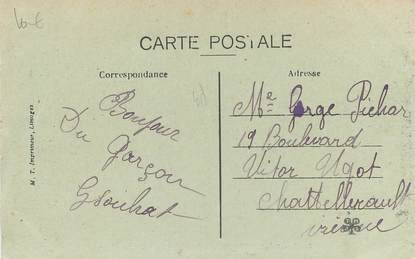 10-E
CARTE POSTALE
Correspondance
Adresse
Bonjour
Du Garçon
Gsouhat
Me Gorge Pichar
19 Boulevard
Vitor Ugot
Chattellerault
vienne
M. T. Imprimeur, Limoges